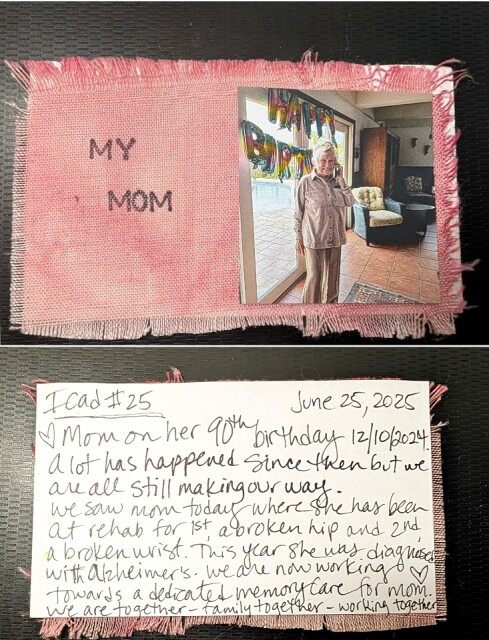 MY
MOM
HAPPY
BIRTH
Icad #25
June 25, 2025
♡ Mom on her 90th birthday 12/10/2024.
A lot has happened since then but we
are all still making our way.
We saw mom today where she has been
at rehab for 1st, a broken hip and 2nd,
a broken wrist. This year she was diagnosed
with alzheimer's. We are now working ♡
towards a dedicated memory care for mom.
We are together - family together - working together